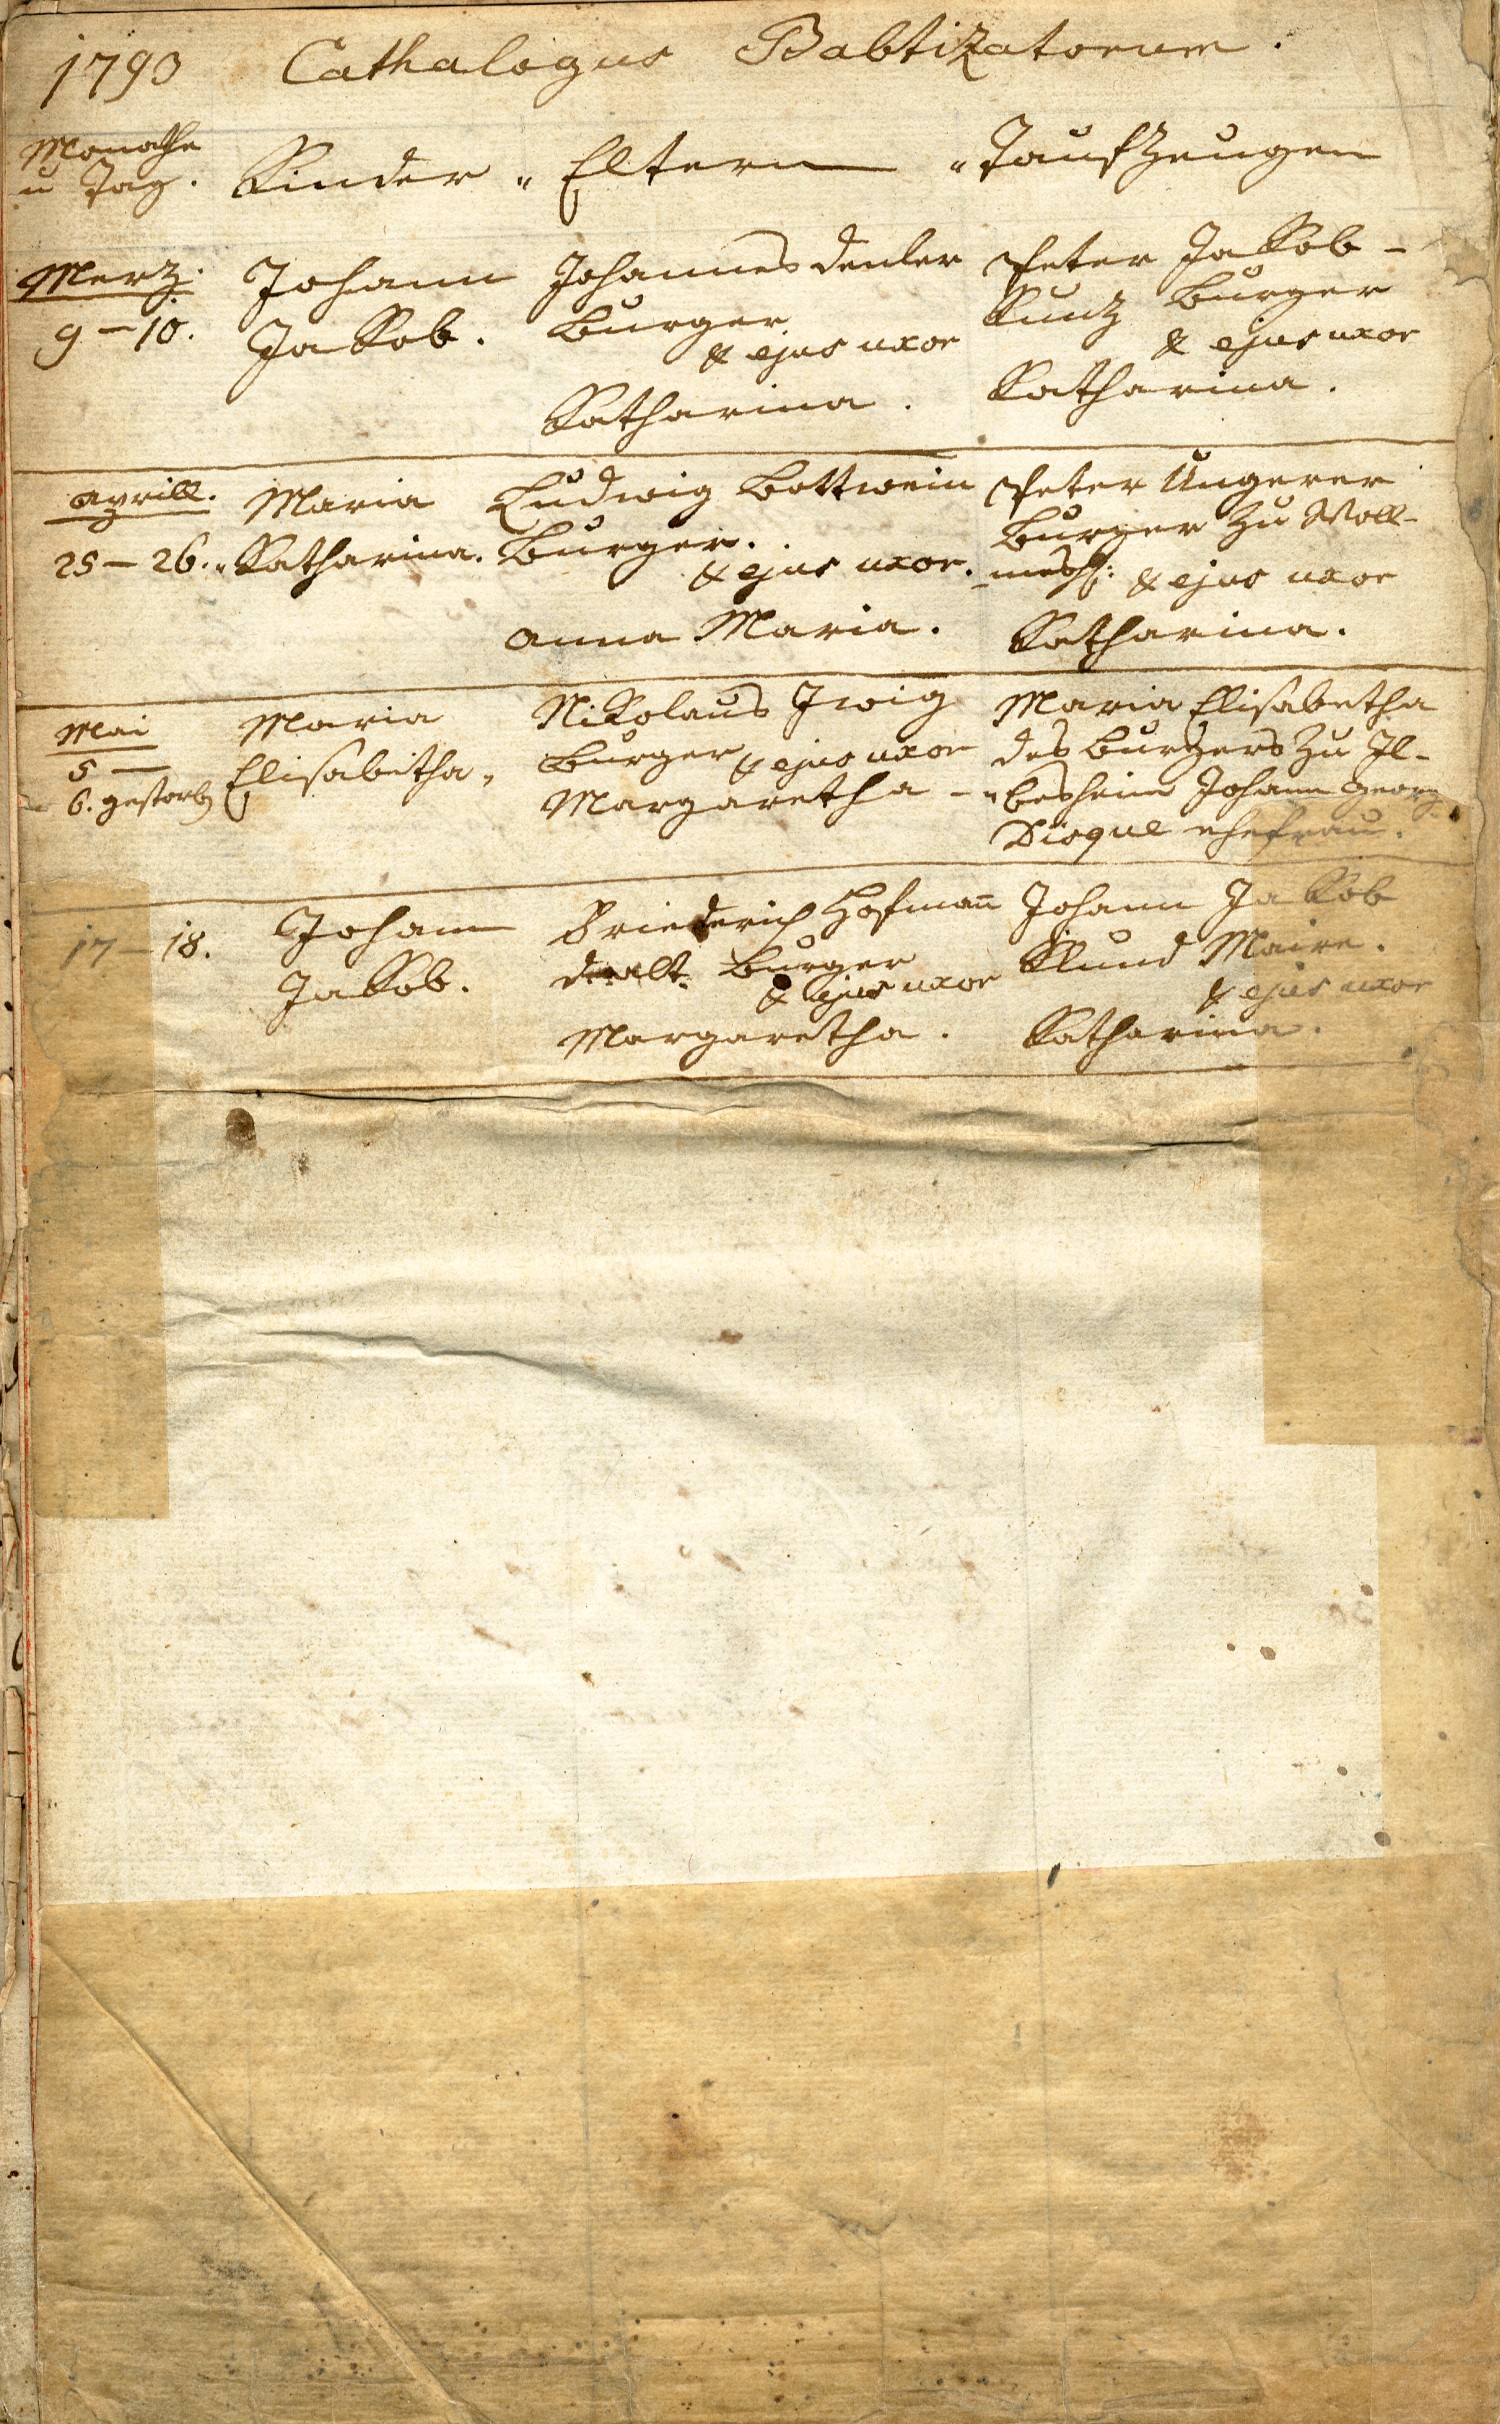 1793 Cathalogus Babtizatorum.
Monathe
u Tag. Kinder „ Eltern — „ Taufzeugen
Merz.
9 – 10.
Johann
Jakob.
Johannes Denler
Burger
& ejus uxor
Katharina.
Peter Jakob –
Kunz Burger
& ejus uxor
Katharina.
Aprill.
25 – 26. „
Maria
Katharina.
Ludwig Bottwein
Burger.
& ejus uxor.
Anna Maria.
Peter Ungerer
Burger zu Woll-
mesh: & ejus uxor
Katharina.
Mai
5 —
6. gestorb
Maria
Elisabetha „
Nikolaus Irvig
Burger & ejus uxor
Margaretha – „
Maria Elisabetha
des Burgers zu Il-
besheim Johann Georg
Dioque ehefrau.
17 – 18.
Johann
Jakob.
Friederich Hofmann
d. alt. Burger
& ejus uxor
Margaretha.
Johann Jakob
Klund Maire.
& ejus uxor
Katharina.